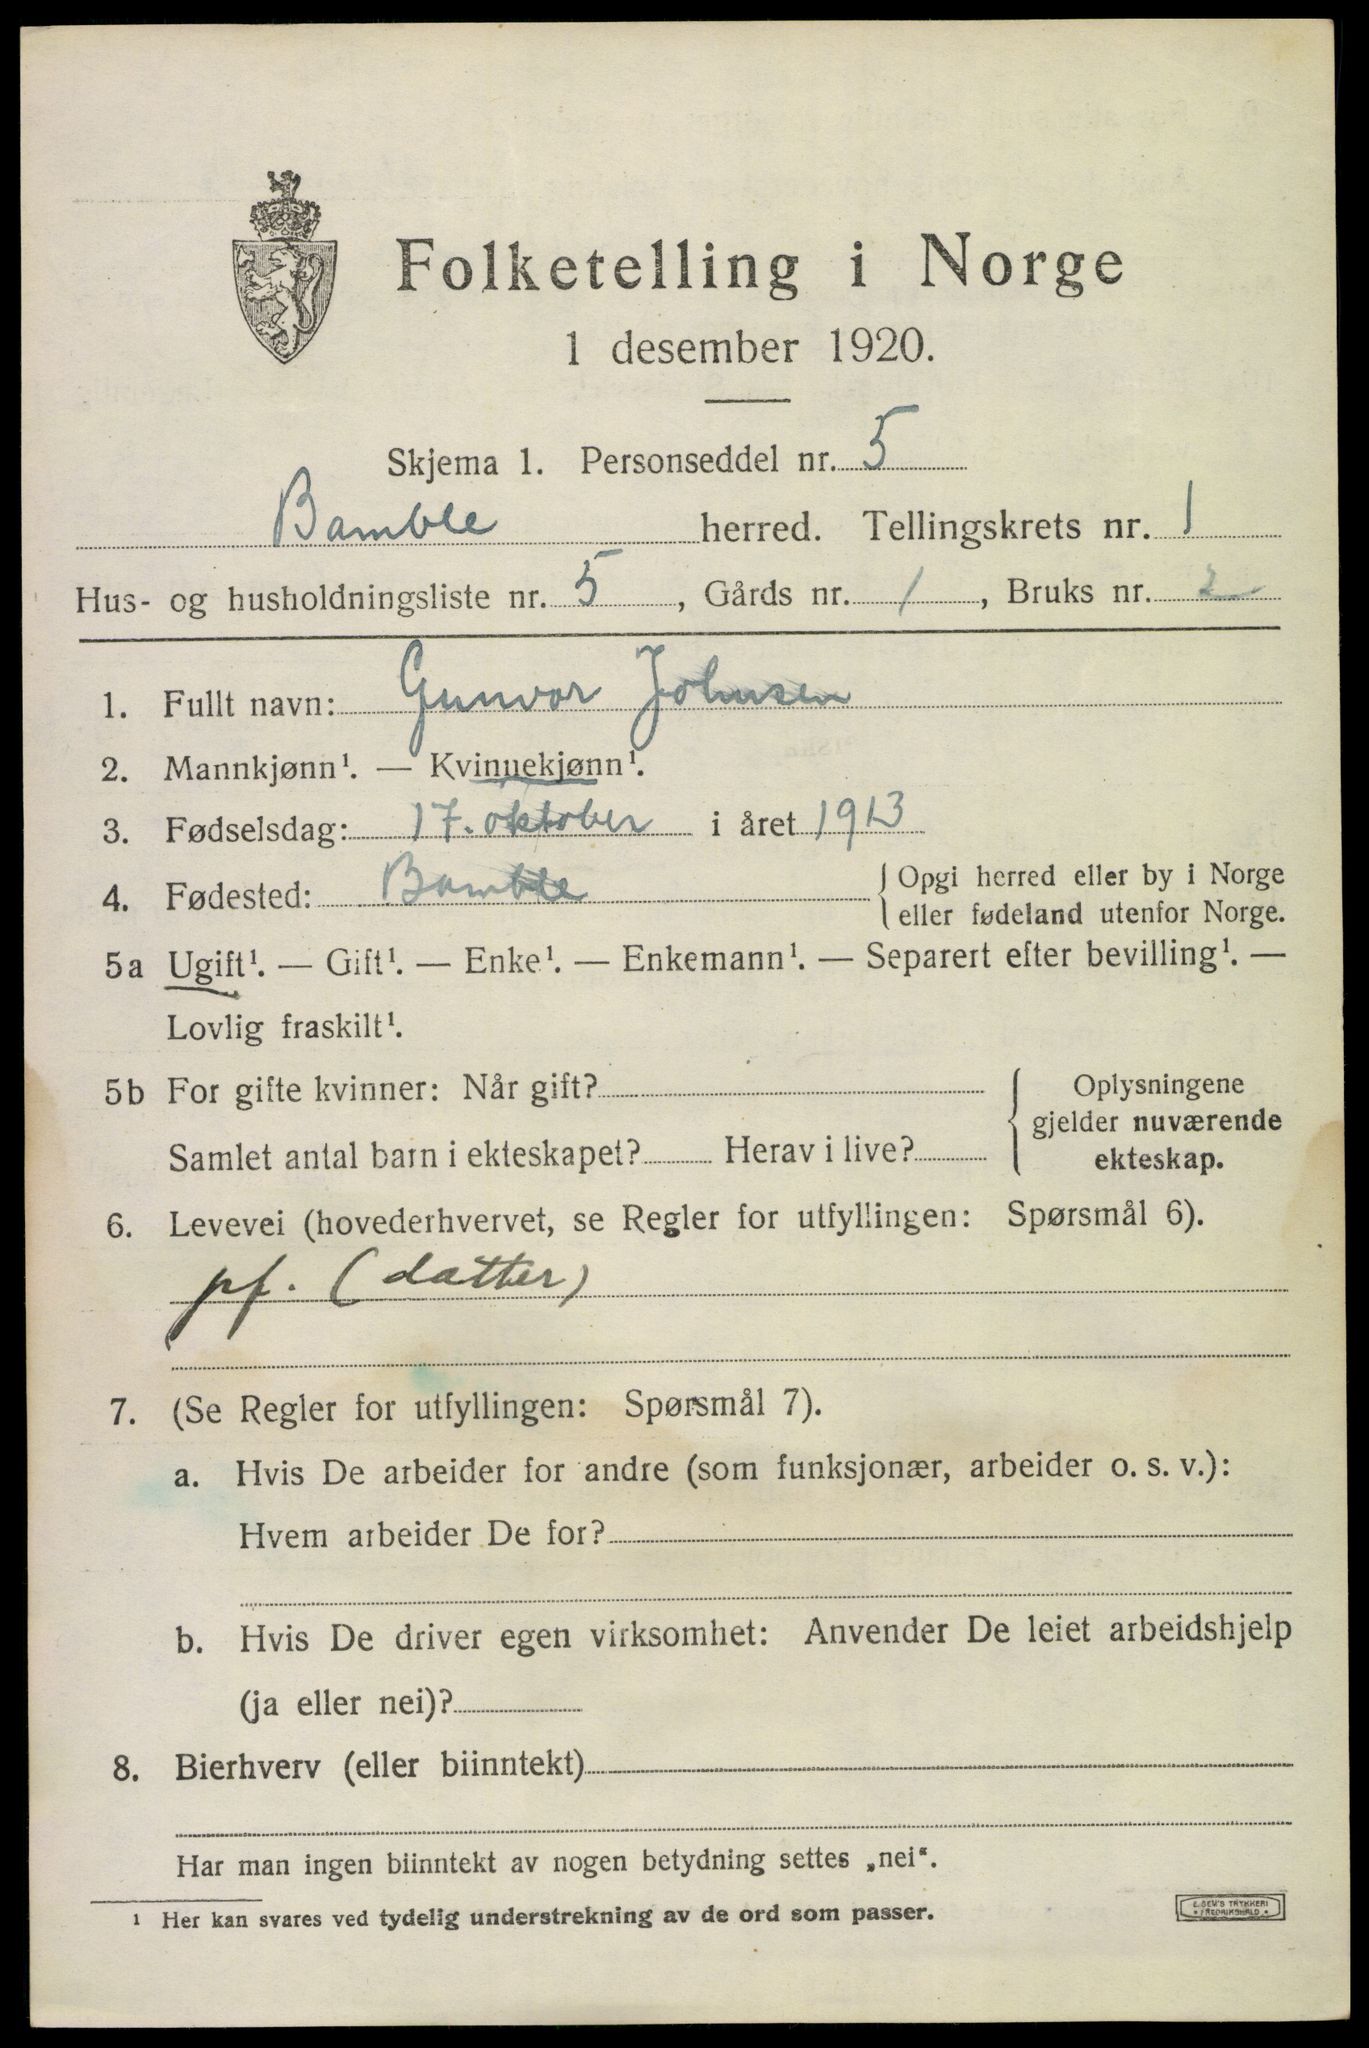 Folketelling i Norge
1 desember 1920.
Skjema 1. Personseddel nr. 5
Bamble herred. Tellingskrets nr. 1
Hus- og husholdningsliste nr. 5, Gårds nr. 1, Bruks nr. 2
1. Fullt navn: Gunvor Johnsen
2. Mannkjønn¹. — Kvinnekjønn¹.
3. Fødselsdag: 17. oktober i året 1913
4. Fødested: Bamble { Opgi herred eller by i Norge
eller fødeland utenfor Norge.
5a Ugift¹. — Gift¹. — Enke¹. — Enkemann¹. — Separert efter bevilling¹. —
Lovlig fraskilt¹.
5b For gifte kvinner: Når gift? { Oplysningene
gjelder nuværende
Samlet antal barn i ekteskapet? Herav i live? ekteskap.
6. Levevei (hovederhvervet, se Regler for utfyllingen: Spørsmål 6).
pf. (datter)
7. (Se Regler for utfyllingen: Spørsmål 7).
a. Hvis De arbeider for andre (som funksjonær, arbeider o. s. v.):
Hvem arbeider De for?
b. Hvis De driver egen virksomhet: Anvender De leiet arbeidshjelp
(ja eller nei)?
8. Bierhverv (eller biinntekt)
Har man ingen biinntekt av nogen betydning settes „nei“.
¹ Her kan svares ved tydelig understrekning av de ord som passer.
E. SEM'S TRYKKERI
FREDRIKSHALD